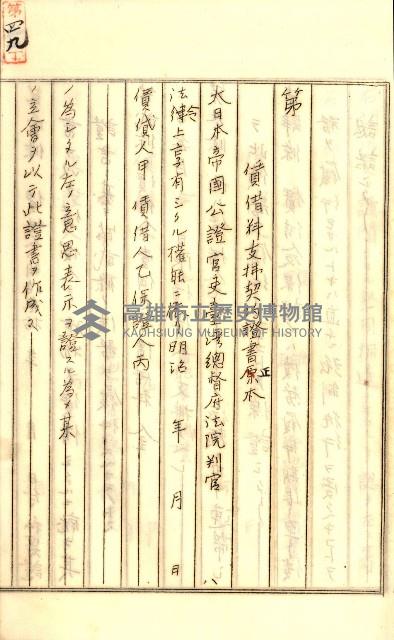 第四九
第
賃借料支拂契約證書原本
正
大日本帝國公證官吏臺灣總督府法院判官ハ
法律上享有シタル權能ニ依リ明治 年 月 日
令
賃貸人甲 賃借人乙 保證人丙
ノ為シタル左ノ意思表示ヲ證スル為メ某
ノ立會ヲ以テ此證書ヲ作成ス
高雄市立歷史博物館
KAOHSIUNG MUSEUM OF HISTORY